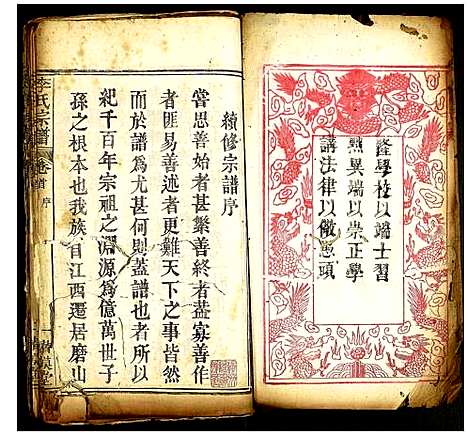 隆學校以端士習
黜異端以崇正學
講法律以儆愚頑
續修宗譜序
嘗思善始者甚繁善終者葢寡善作
者匪易善述者更難天下之事皆然
而於譜爲尤甚何則葢譜也者所以
紀千百年宗祖之淵源爲億萬世子
孫之根本也我族自江西遷居磨山
李氏宗譜
卷首
序